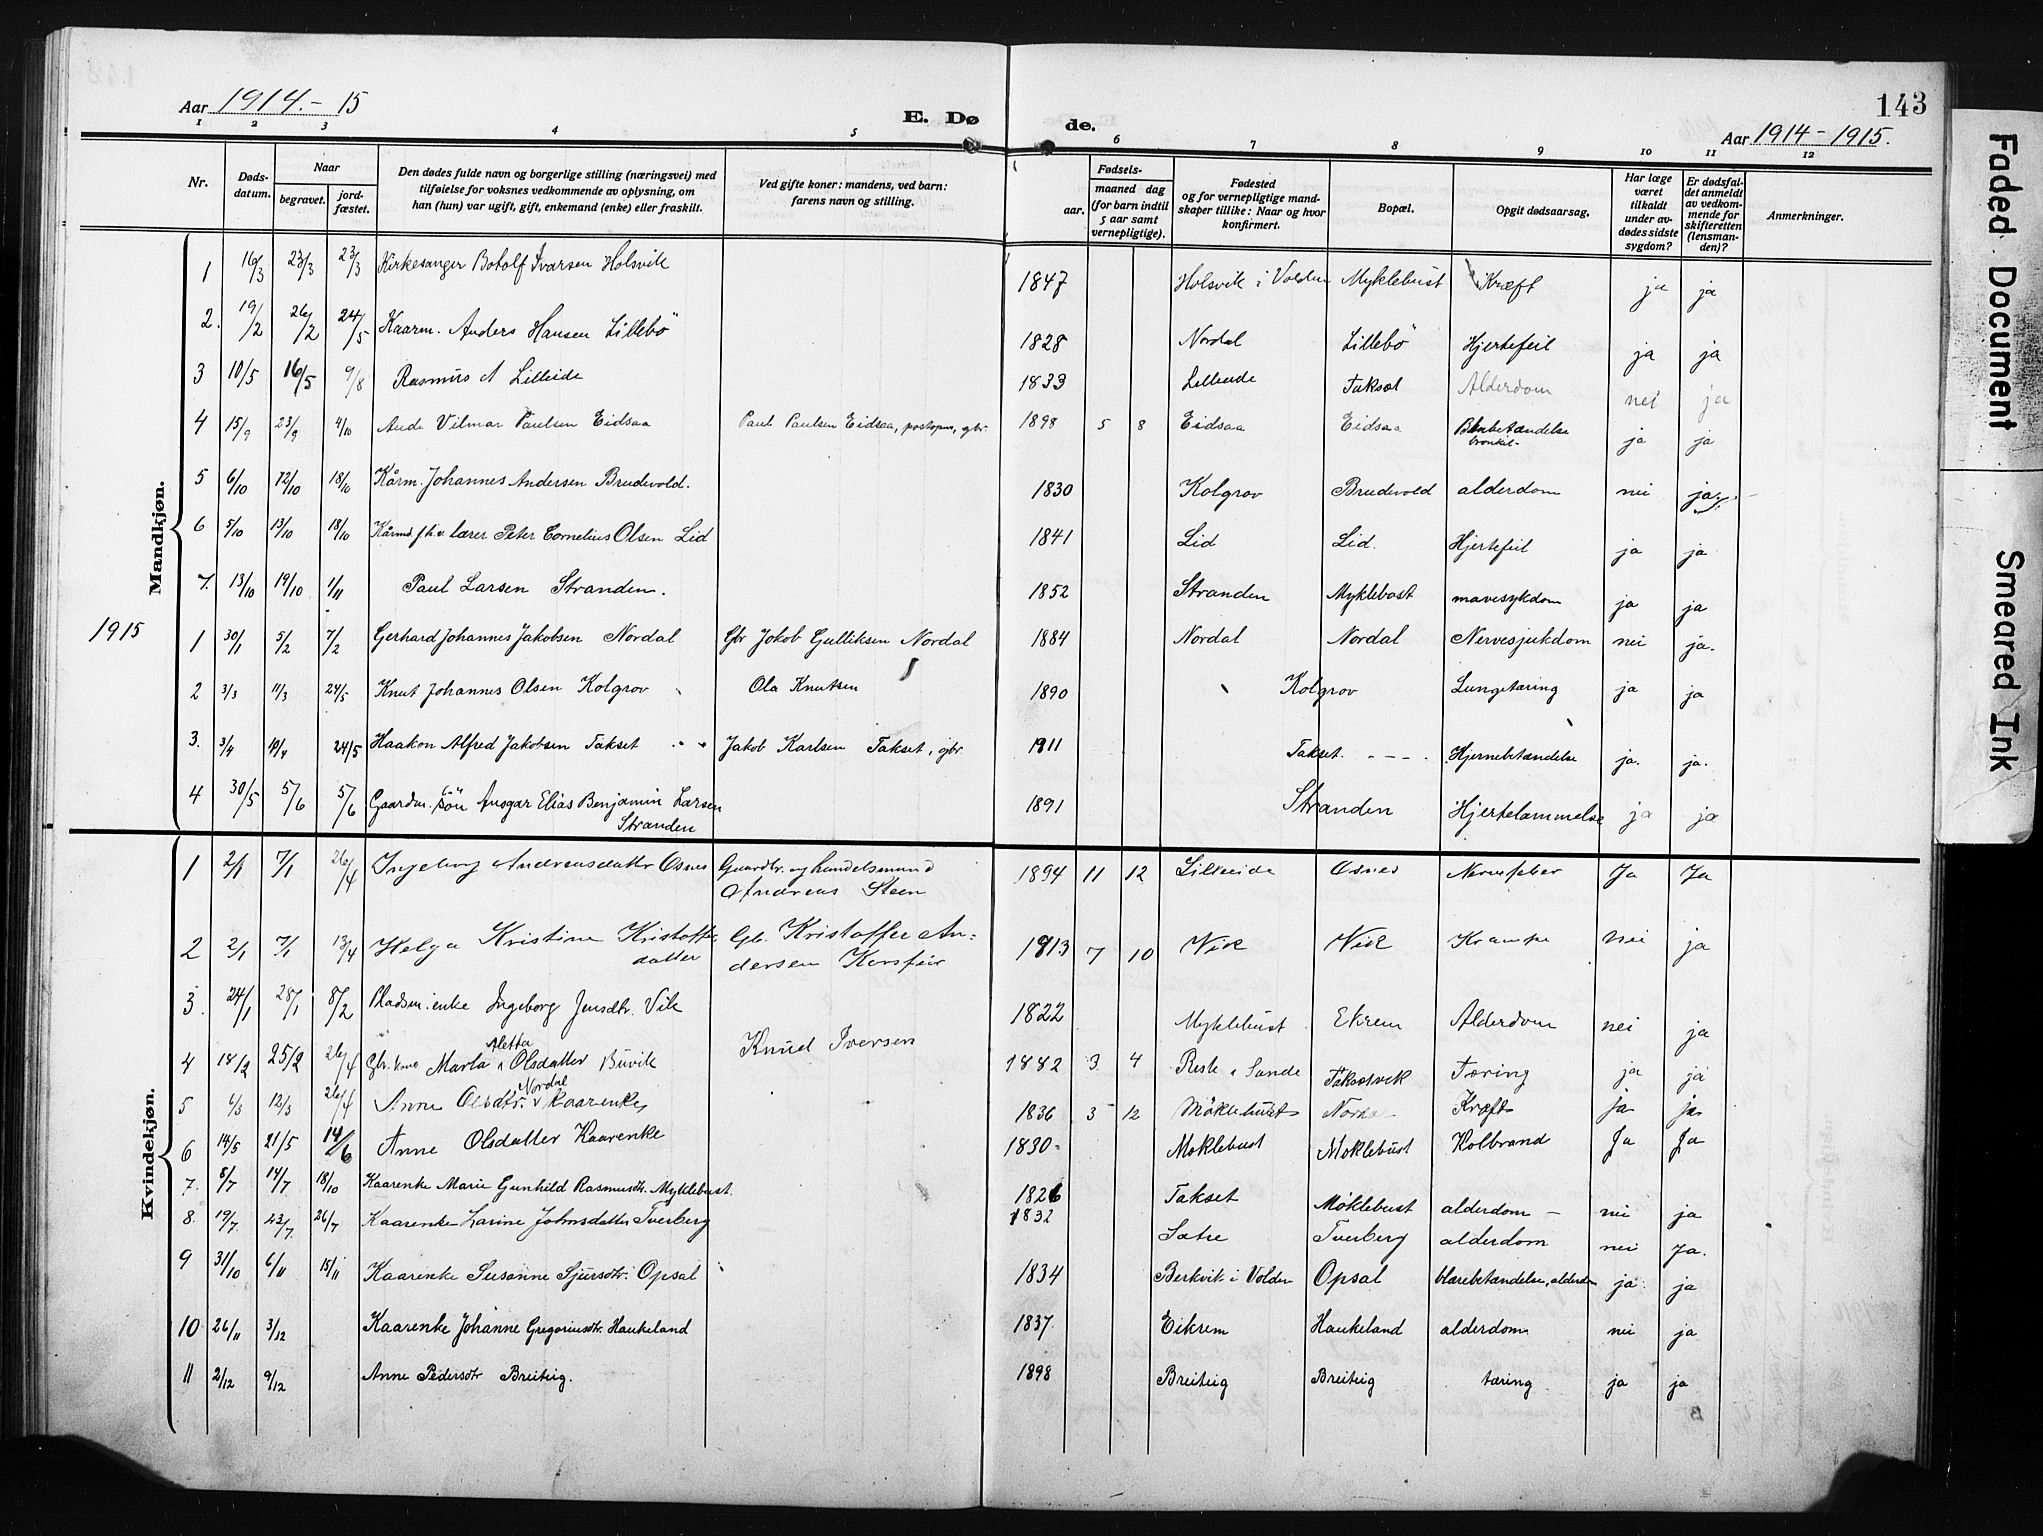 Aar 1914.-15
E. Døde.
143
Aar 1914-1915.
1 2 3 4 5 6 7 8 9 10 11 12
Nr.
Døds-datum.
Naar
begravet.
jord-fæstet.
Den dødes fulde navn og borgerlige stilling (næringsvei) med
tilføielse for voksnes vedkommende av oplysning, om
han (hun) var ugift, gift, enkemand (enke) eller fraskilt.
Ved gifte koner: mandens, ved barn:
farens navn og stilling.
Fødsels-
aar.
maaned dag
(for barn indtil
5 aar samt
vernepligtige).
Fødested
og for vernepligtige mand-
skaper tillike: Naar og hvor
konfirmert.
Bopæl.
Opgit dødsaarsag.
Har læge
været
tilkaldt
under av-
dødes sidste
sygdom?
Er dødsfal-
det anmeldt
av vedkom-
mende for
skifteretten
(lensman-
den)?
Anmerkninger.
Mandkjøn.
1 16/3 23/3 23/3 Kirkesanger Botolf Ivarsen Holsvik 1847 Holsvik i Volden Myklebust Kræft ja ja
2. 19/2 26/2 24/5 Kaarm. Anders Hansen Lillebö 1828 Nordal Lillebö Hjertefeil ja ja
3 10/5 16/5 9/8 Rasmus A Lilleide 1833 Lilleide Taksæt Alderdom nei ja
4 15/9 23/9 4/10 Aude Vilmar Paulsen Eidsaa Paul Paulsen Eidsaa, postopn, gbr. 1898 5 8 Eidsaa Eidsaa ja ja
5 6/10 12/10 18/10 Kårm. Johannes Andersen Brudevold. 1830 Kolgrov Brudevold alderdom nei ja.
6 5/10 13/10 18/10 Kårmd. f.h.v. lærer Peter Cornelius Olsen Lid 1841 Lid Lid. Hjertefeil ja ja
7. 13/10 19/10 1/11 Paul Larsen Stranden. 1852 Stranden Myklebost mavesykdom ja ja
1915
1 30/1 5/2 7/2 Gerhard Johannes Jakobsen Nordal Gbr Jokob Gulliksen Nordal 1884 Nordal Nordal Nervesjukdom nei ja.
2 3/3 11/3 24/5 Knut Johannes Olsen Kolgrov Ola Knutsen 1890 Kolgrov Lungetæring ja ja
3. 3/4 10/4 24/5 Haakon Alfred Jakobsen Takset Jakob Karlsen Takset, gbr. 1911 Takset. Hjernebetændelse ja. ja.
4 30/5 5/6 5/6 Gaardm. sön Ansgar Elias Benjamin Larsen
Stranden 1891 Stranden Hjertelammelse ja ja
Kvindekjøn.
1 2/1 7/1 26/4 Ingeborg Andreasdatter Osnes Gaardbr. og handelsmand
Andreas Steen 1894 11 12 Lilleeide Osnes Nervefeber Ja Ja
2 2/1 7/1 13/4 Helga Kristine Kristoffer
datter Gb. Kristoffer An-
dersen 1913 7 10 Vik Vik Krampe Nei ja
3. 24/1 28/1 8/2 Pladsm. enke Ingeborg Jensdtr. Vik 1822 Myklebust Ekrem Alderdom nei ja
Aletta
4 18/2 25/2 26/4 Gbr. kone Marta Olsdatter Buvik Knud Iversen 1882 3 4 Reste i Sande Taksetvik Tæring ja ja
Nordal
5 6/3 12/3 26/4 Anne Olsdtr. Kaarenke 1836 3 12 Møklebust Nordal Kræft ja ja
6 14/5 21/5 14/6 Anne Olsdatter Kaarenke 1830 Moklebust Moklebust Kolbrand Ja Ja
7. 8/7 14/7 18/10 Kaarenke Marie Gunhild Rasmusdtr. Myklebust. 1826 Takset Møklebust alderdom nei ja
8. 19/7 23/7. 26/7 Kaarenke Larine Johnsdatter Tverberg 1832 Satre Tverberg alderdom nei Ja.
9 31/10 6/11 15/11 Kaarenke Susanne Sjursdtr. Opsal 1834 Berkvik i Volden Opsal blærebetændelse, alderdom ja ja
10 26/11 3/12 Kaarenke Johanne Gregoriusdtr. Haukeland 1837 Eikrem Haukeland alderdom nei ja
11 2/12 9/12 Anne Pedersdtr Breiteig. 1898 Breiteig Breiteig tæring ja ja
Faded Document
Smeared Ink